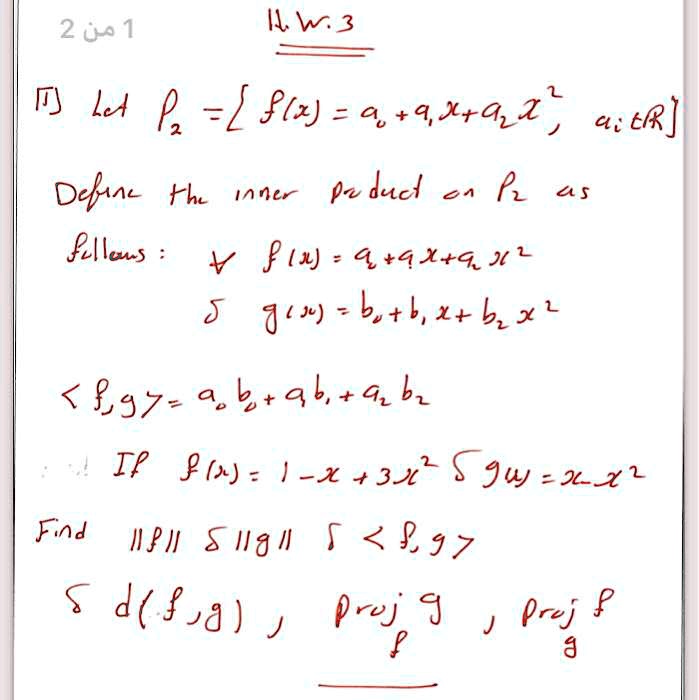 1 من 2
H.W.3
[1] Let P₂ = { f(x) = a₀ + a₁x + a₂x², aᵢ ∈ ℝ }
Define the inner product on P₂ as
follows: ∀ f(x) = a₀ + a₁x + a₂x²
& g(x) = b₀ + b₁x + b₂x²
<f,g> = a₀b₀ + a₁b₁ + a₂b₂
If f(x) = 1 - x + 3x² & g(x) = x - x²
Find ||f|| & ||g|| & <f,g>
& d(f,g), proj_f g, proj_g f